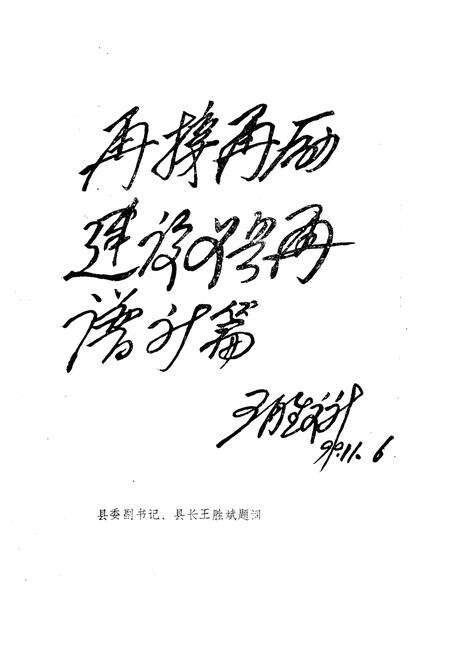 再接再励
建设 再
谱新篇
王胜斌
90.11.6
县委副书记、县长王胜斌题词